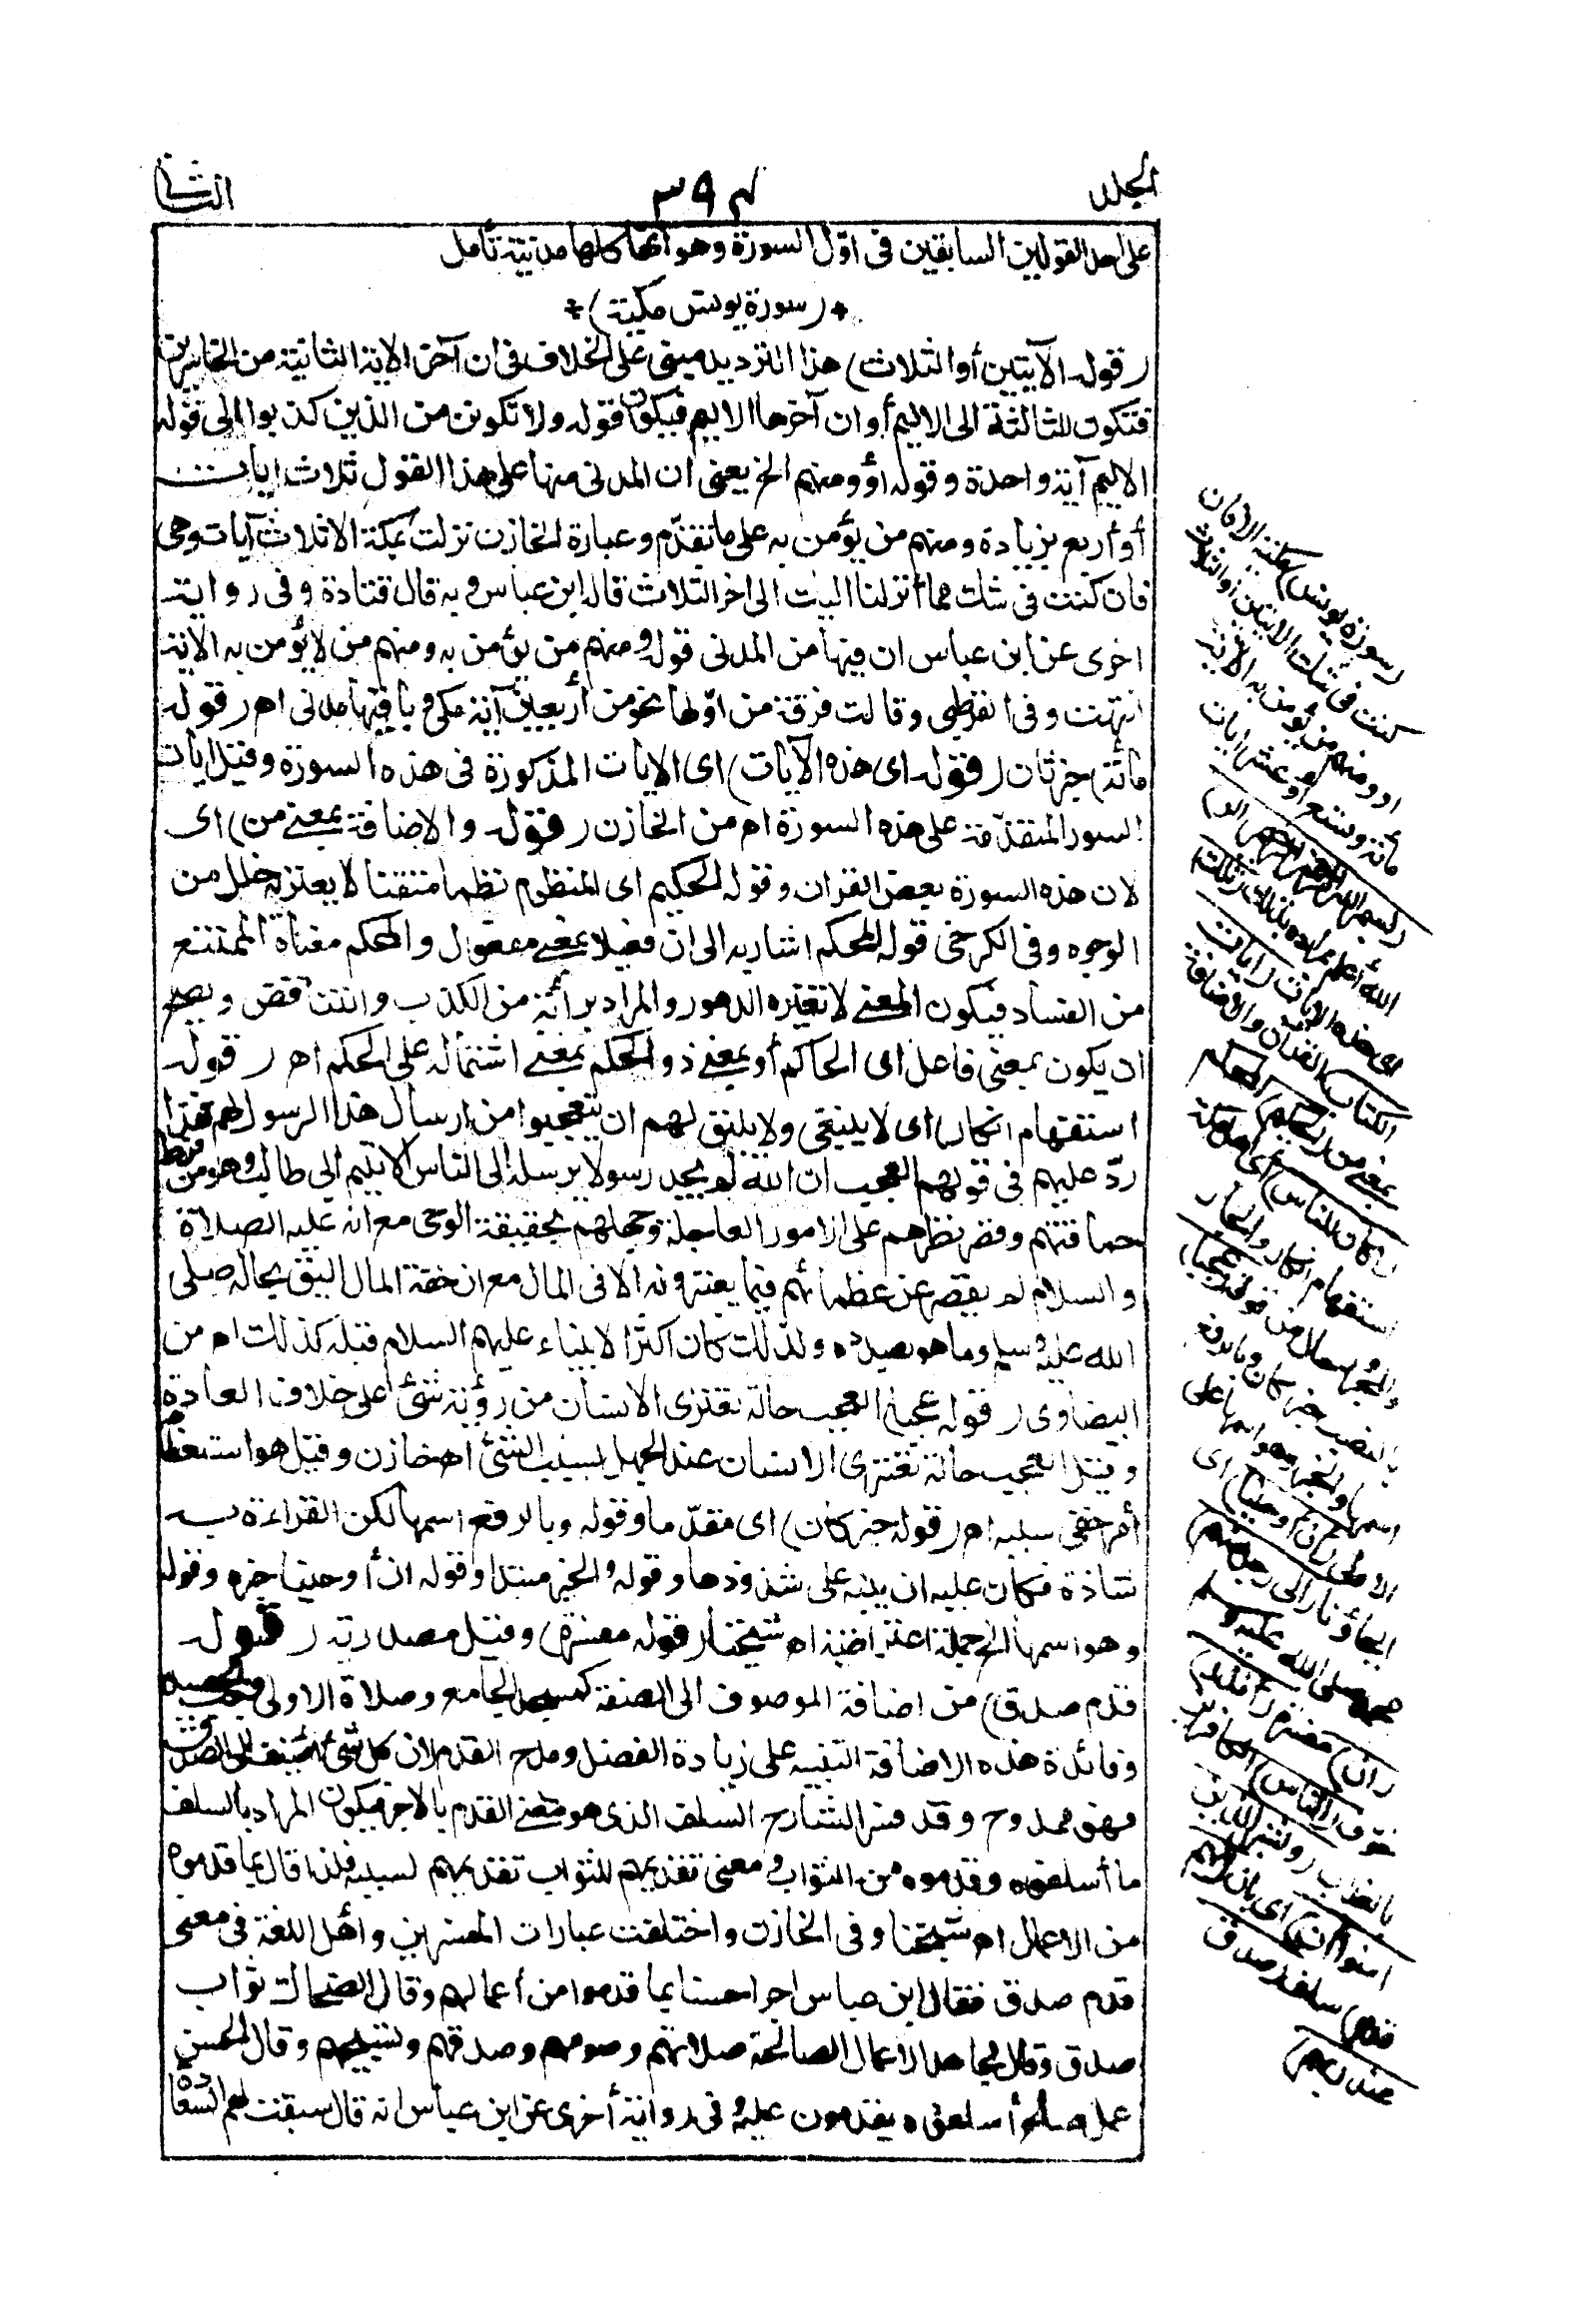 الجلد
٣٩٤
الثانى
على احد القولين السابقين فى اوّل السورة وهو انها كلها مدنية تأمل
*(سورة يونس مكية)*
(قوله الآيتين أو الثلاث) هذا الترديد مبنى على الخلاف فى ان آخر الاية الثانية من الخاسرين
فتكون الثالثة الى الاليم أو ان آخرها الاليم فيكون قوله ولا تكونن من الذين كذبوا الى قوله
الاليم آية واحدة وقوله أو ومنهم الخ يعنى ان المدنى منها على هذا القول ثلاث ايات
أو أربع بزيادة ومنهم من يؤمن به على ما تقدّم وعبارة الخازن نزلت بمكة الا ثلاث آيات وهى
فان كنت فى شك مما أنزلنا اليك الى اخر الثلاث قاله ابن عباس وبه قال قتادة وفى رواية
اخرى عن ابن عباس ان فيها من المدنى قوله ومنهم من يؤمن به ومنهم من لا يؤمن به الاية
انتهت وفى القرطبى وقالت فرقة من اوّلها نحو من أربعين آية مكى وباقيها مدنى اه (قوله
مائة) جزآن (قوله اى هذه الآيات) اى الايات المذكورة فى هذه السورة وقيل ايات
السور المتقدّمة على هذه السورة اه من الخازن (قوله والاضافة بمعنى من) اى
لان هذه السورة بعض القران وقوله الحكيم اى المنظوم نظما متقنا لا يعتريه خلل من
الوجوه وفى الكرخى قوله المحكم اشار به الى ان فعيلا بمعنى مفعول والمحكم معناه الممتنع
من الفساد فيكون المعنى لا تغيّره الدهور والمراد براءته من الكذب والتناقض ويصح
ان يكون بمعنى فاعل اى الحاكم أو بمعنى ذو الحكم بمعنى اشتماله على الحكم اه (قوله
استفهام انكار) اى لا ينبغى ولا يليق لهم ان يتعجبوا من ارسال هذا الرسول لهم فهذا
ردّ عليهم فى قولهم العجب ان الله لم يجد رسولا يرسله الى الناس الا يتيم ابى طالب وهو من فرط
حماقتهم وقصر نظرهم على الامور العاجلة وجهلهم بحقيقة الوحى مع انه عليه الصلاة
والسلام لم يقصر عن عظمائهم فيما يعتبرونه الا فى المال مع ان خفة المال اليق بحاله صلى
الله عليه وسلم وما هو بصدده ولذلك كان اكثر الانبياء عليهم السلام قبله كذلك اه من
البيضاوى (قوله عجبا) العجب حالة تعترى الانسان من رؤية شئ على خلاف العادة
وقيل العجب حالة تعترى الانسان عند الجهل بسبب الشئ اه خازن وقيل هو استعظام
أمر خفى سببه اه (قوله خبر كان) اى مقدّما وقوله وبالرفع اسمها لكن القراءة به
شاذة فكان عليه ان ينبه على شذوذها وقوله والخبر مبتدا وقوله ان أوحينا خبره وقوله
وهو اسمها الخ جملة اعتراضية اه شيخنا (قوله مفسّرة) وقيل مصدرية (قوله
قدم صدق) من اضافة الموصوف الى الصفة كمسجد الجامع وصلاة الاولى وحب الحصيد
وفائدة هذه الاضافة التنبيه على زيادة الفضل ومدح القدم لان كل شئ أضيف الى الصدق
فهو ممدوح وقد فسر الشارح السلف الذى هو معنى القدم بالاجر فيكون المراد بالسلف
ما أسلفوه وقدموه من الثواب ومعنى تقديمهم للثواب تقديمهم لسببه فلذا قال بما قدموه
من الاعمال اه شيخنا وفى الخازن واختلفت عبارات المفسرين وأهل اللغة فى معنى
قدم صدق فقال ابن عباس اجرا حسنا بما قدموا من أعمالهم وقال الضحاك ثواب
صدق وقال مجاهد الاعمال الصالحة صلاتهم وصومهم وصدقهم وتسبيحهم وقال الحسن
عمل صالح أسلفوه يقدمون عليه وفى رواية أخرى عن ابن عباس انه قال سبقت لهم السعادة
(سورة يونس) مكية الا فان
كنت فى شك الايتين أو الثلاث
أو ومنهم من يؤمن به الاية
مائة وتسع أو عشر ايات
(بسم الله الرحمن الرحيم الر)
الله أعلم بمراده بذلك (تلك)
اى هذه الايات (ايات
الكتاب) القران والاضافة
بمعنى من (الحكيم) المحكم
(أكان للناس) اى اهل مكة
استفهام انكار والجار
والمجرور حال من قوله (عجبا)
بالنصب خبر كان وبالرفع
اسمها والخبر وهو اسمها على
الاولى (أن أوحينا) اى
ايحاؤنا (الى رجل منهم)
محمد صلى الله عليه وسلم
(أن) مفسرة (أنذر)
خوف (الناس) الكافرين
بالعذاب (وبشر الذين
امنوا أن) اى بان (لهم
قدم) سلف (صدق
عند ربهم)